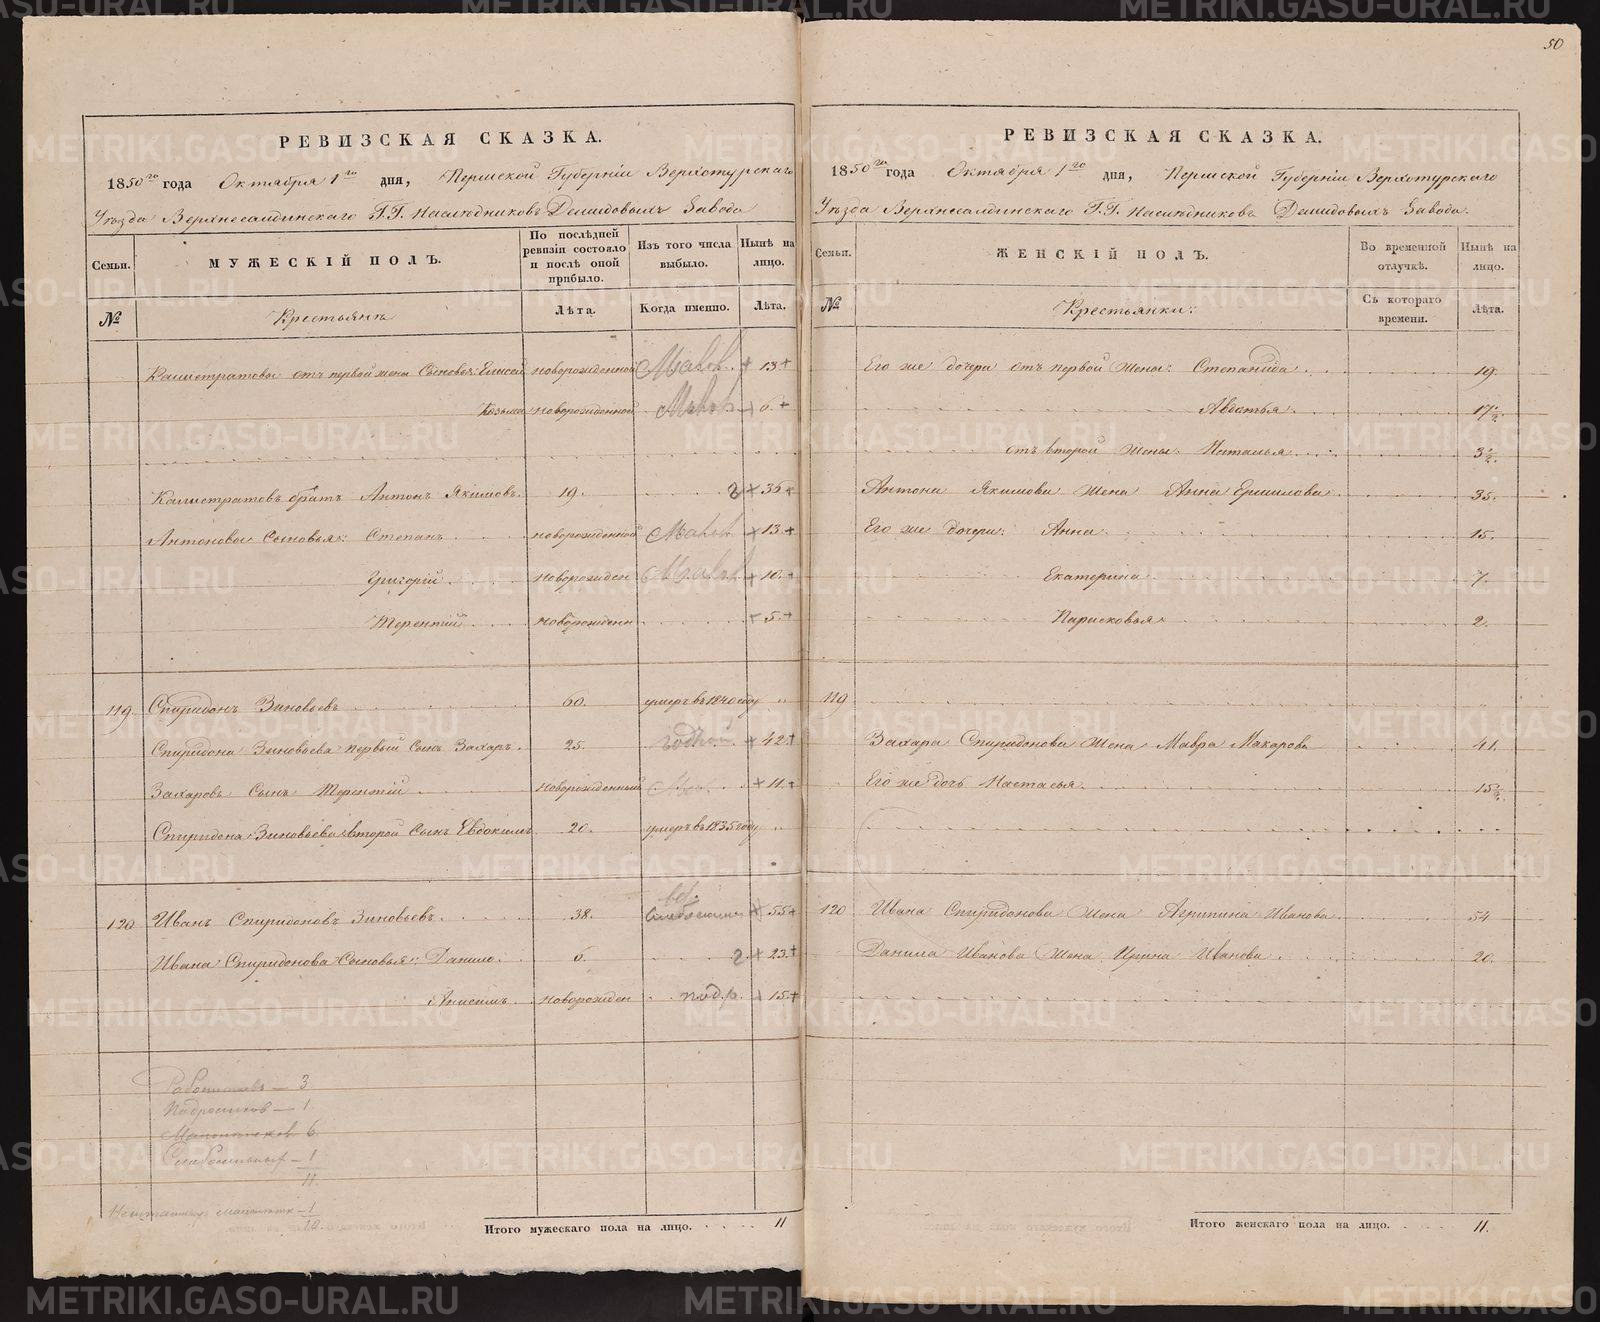 50
РЕВИЗСКАЯ СКАЗКА.
1850го года Октября 1го дня, Пермской Губерніи Верхотурскаго
Уѣзда Верхнесалдинскаго Г.Г. Наслѣдниковъ Демидовыхъ Завода
Семьи. МУЖЕСКІЙ ПОЛЪ. По послѣдней ревизіи состояло и послѣ оной прибыло. Изъ того числа выбыло. Нынѣ на лицо.
№ Крестьянъ Лѣта. Когда именно. Лѣта.
Калистратовы отъ первой жены Сыновья: Елисей новорожденной 13
Козьма новорожденной 6
Калистратовъ братъ Антонъ Якимовъ. 19. 2 36
Антоновы Сыновья: Степанъ новорожденной 13
Григорій новорожден 10
Терентій новорожденн 5
119. Спиридонъ Зиновьевъ 60. умеръ въ 1840 году „
Спиридона Зиновьева первый Сынъ Захаръ. 25. годной 42
Захаровъ Сынъ Терентій новорожденный 11
Спиридона Зиновьева второй Сынъ Евдокимъ 20. умеръ въ 1835 году „
120 Иванъ Спиридоновъ Зиновьевъ. 38. 55
Ивана Спиридонова Сыновья: Данило. 6. 2 23
Анисимъ новорожден подр. 15
Работниковъ — 3
Подростков — 1
Малолетков 6
Слабосильных — 1
11
— 1
Итого мужескаго пола на лицо. 11
РЕВИЗСКАЯ СКАЗКА.
1850го года Октября 1го дня, Пермской Губерніи Верхотурскаго
Уѣзда Верхнесалдинскаго Г.Г. Наслѣдниковъ Демидовыхъ Завода.
Семьи. ЖЕНСКІЙ ПОЛЪ. Во временной отлучкѣ. Нынѣ на лицо.
№ Крестьянки: Съ котораго времени. Лѣта.
Его же дочери отъ первой Жены: Степанида 19.
Авдотья 17½
отъ второй Жены: Наталья 3½
Антона Якимова Жена Анна Ермилова 35.
Его же дочери: Анна 15.
Екатерина 7.
Парасковья 2.
119
Захара Спиридонова Жена Мавра Макарова 41.
Его же дочь Настасья 15½
120 Ивана Спиридонова Жена Агрипина Иванова 54
Данила Иванова Жена Ирина Иванова 20.
Итого женскаго пола на лицо. 11.
METRIKI.GASO-URAL.RU